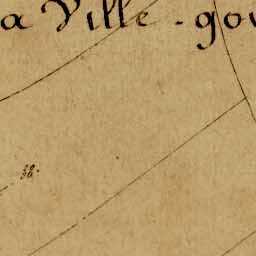 a Ville-gou